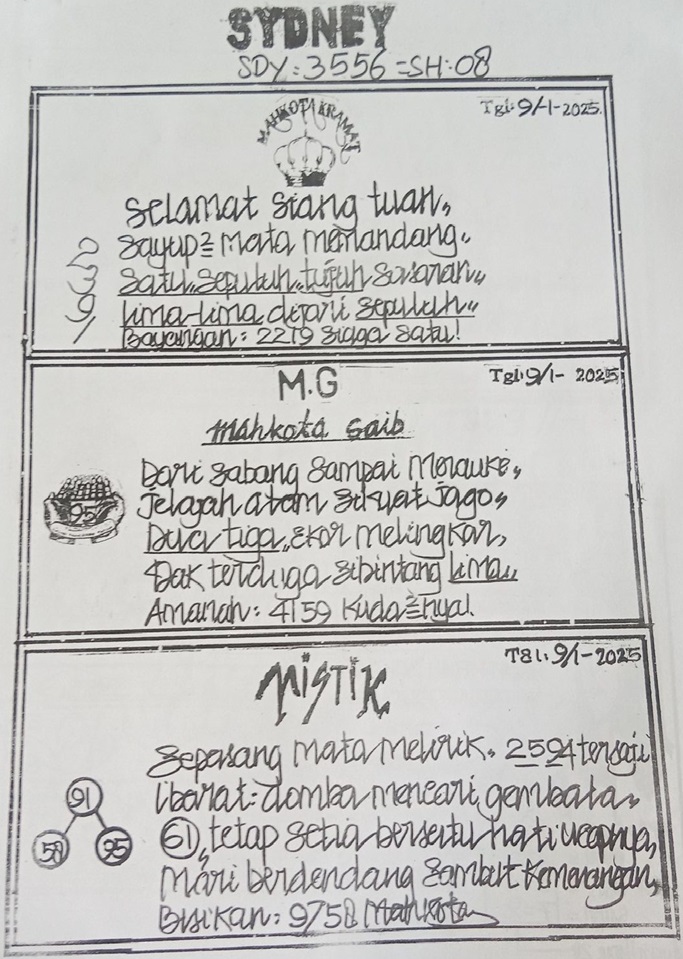 SYDNEY
SDY: 3556 = SH: 08
MAHKOTA KRAMAT
Tgl: 9/1-2025.
Selamat siang tuan,,
Sayup² mata memandang.
Satu,, sepuluh,, tujuh sasaran,,
Lima-lima dijari sepuluh,,
Bayangan: 2219 siaga satu!
M.G
Tgl: 9/1- 2025
Mahkota Gaib
Dari Sabang Sampai Merauke,,
95
Jelajah atom si kuat jago,,
Dua tiga,, ekor melingkar,
Dak terduga sibintang lima,,
Amanah: 4159 Kuda²nya!
MISTIK
Tgl: 9/1-2025
Sepasang mata melirik. 2594 tersaji
91
Ibarat: domba mencari gembala,,
61, tetap setia bersatu hati ucapnya,
95
Mari berdendang sambut kemenangan,
Bisikan: 9758 Mahkota